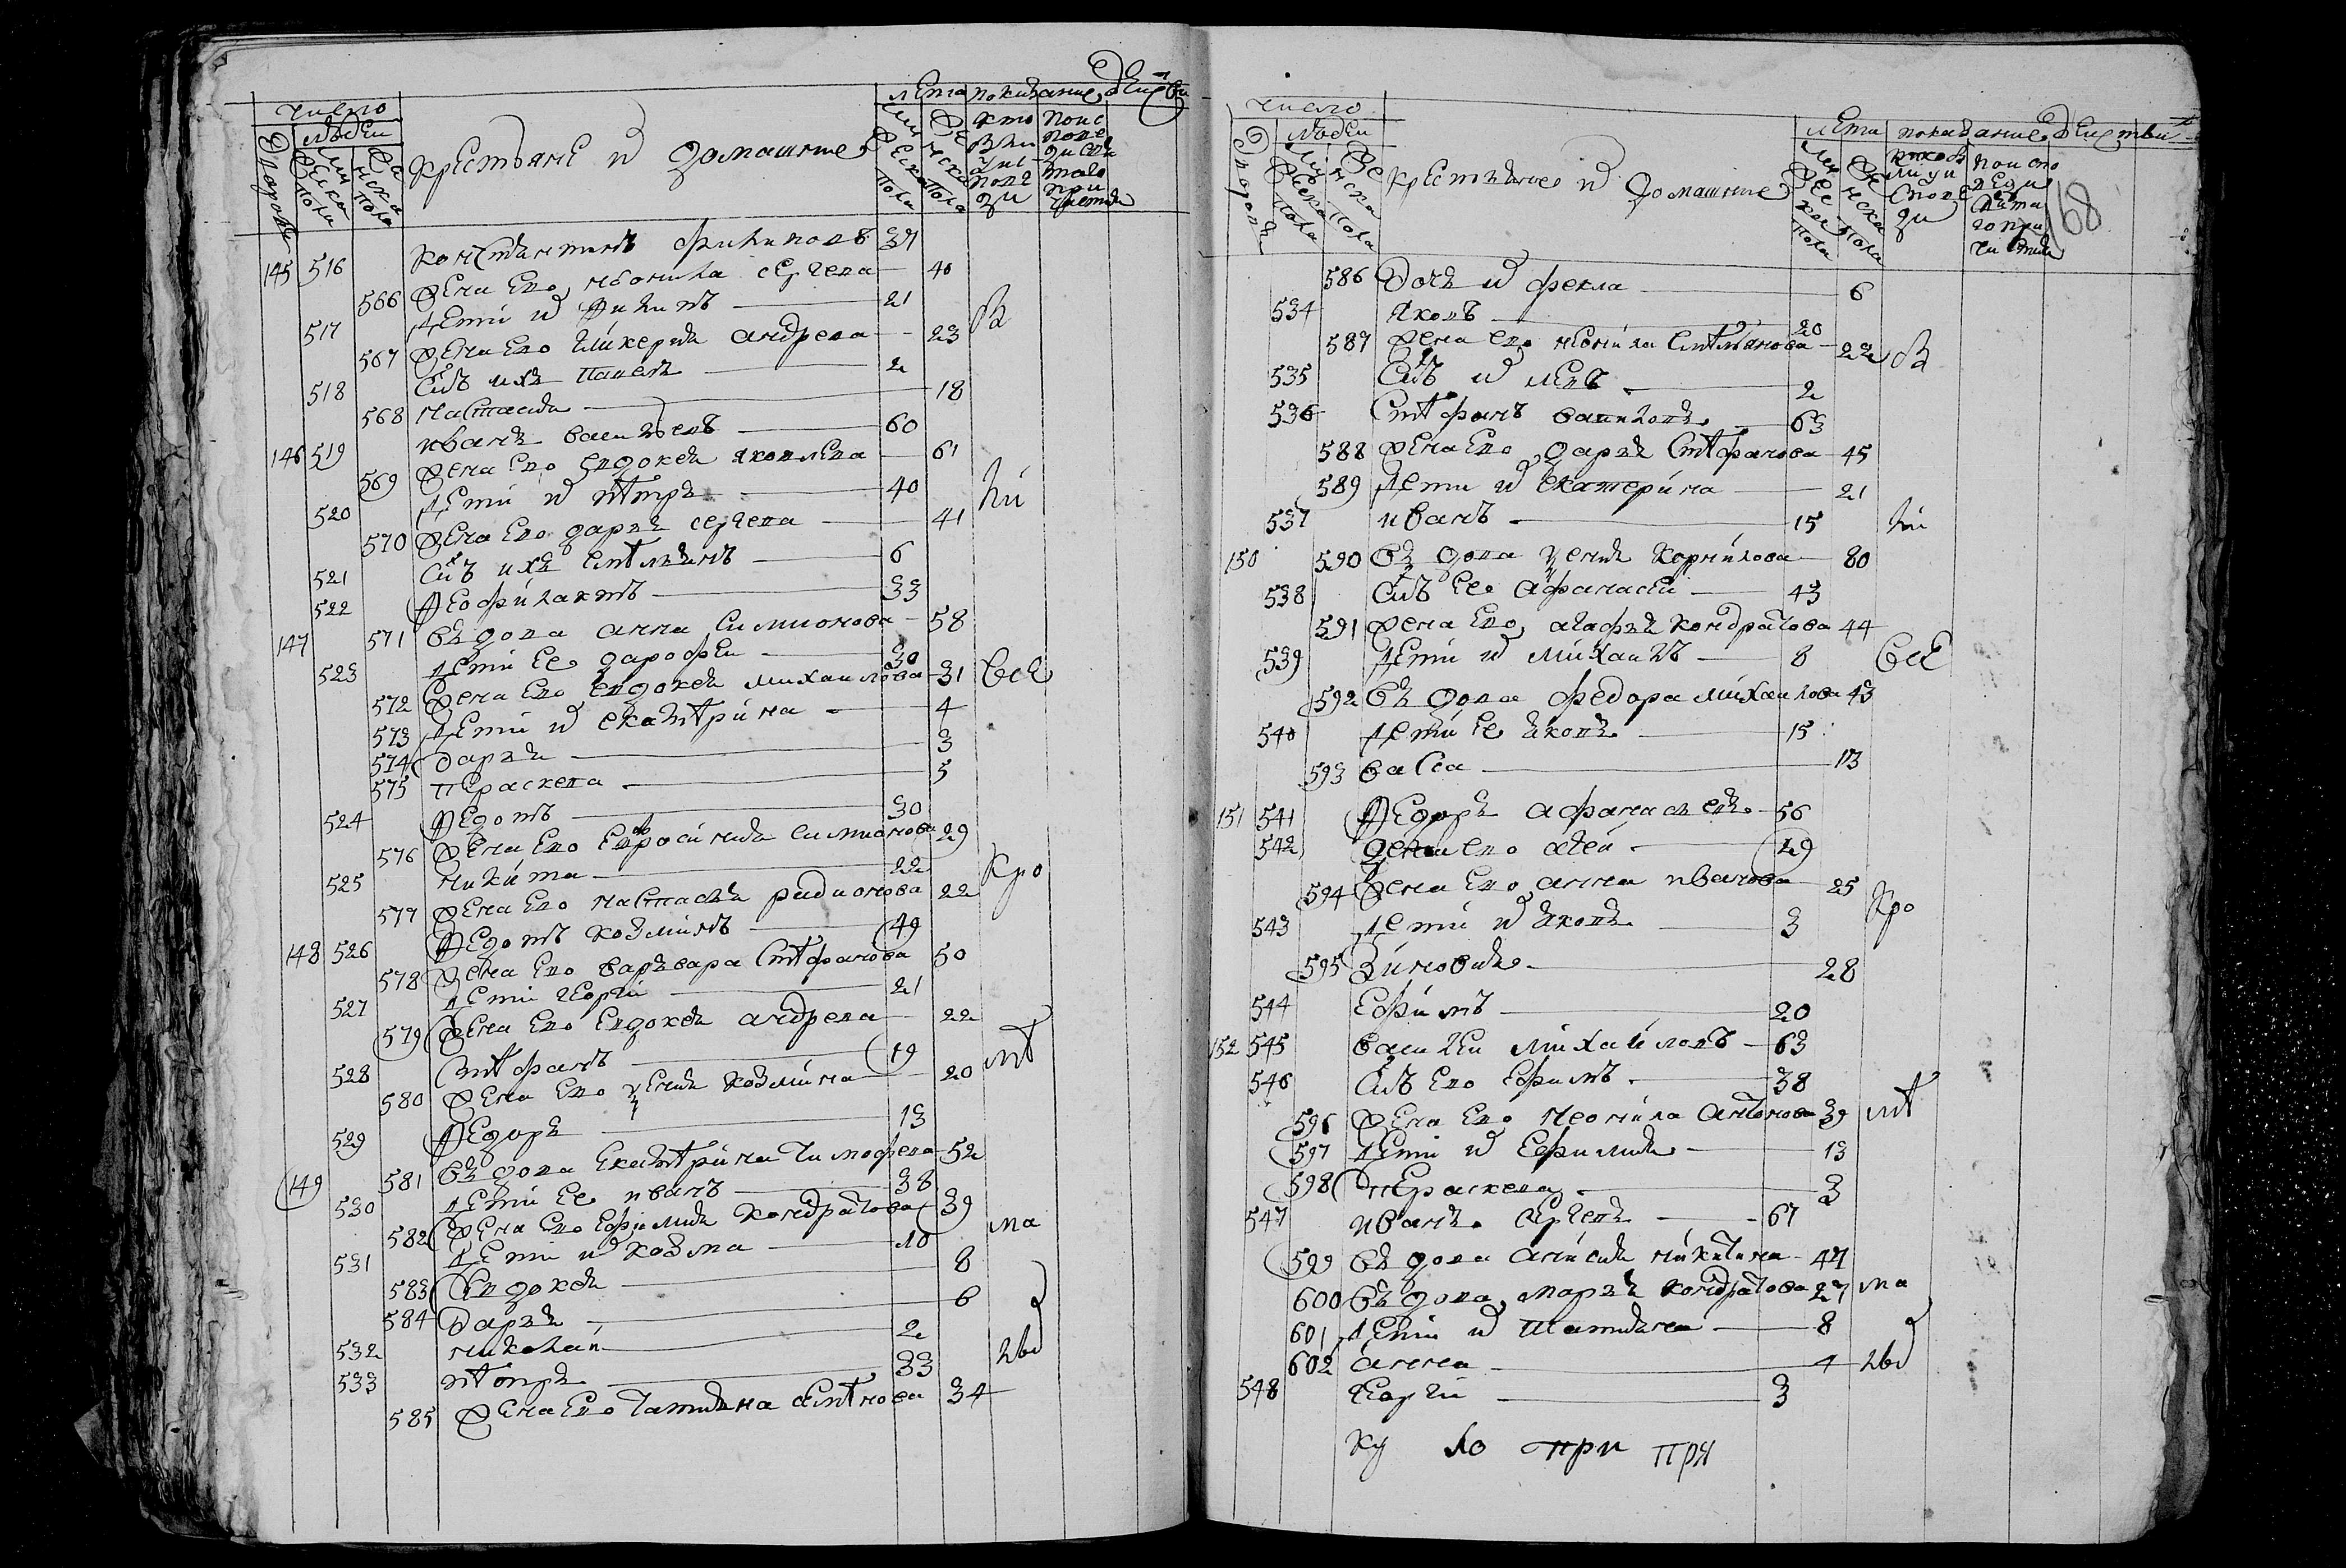 число
людей
дворовъ
мужеска пола
женска пола
крестьяне и домашние
лета
показание действи
мужеска пола
женска пола
145 516 константинъ филиповъ 37
566 жена ево неонила сергеева 40
517 дети их никитъ 21
567 жена ево гликерия андреева 23
518 снъ ихъ павелъ 2
568 настасия 18
146 519 иванъ васильевъ 60
569 жена ево евдокея яковлева 61
520 дети их петръ 40
570 жена ево даря сергеева 41
521 снъ ихъ емельянъ 6
522 феофилактъ 33
147 571 вдова анна симионова 58
523 дети ее дорофеи 30
572 жена ево евдокея михаилова 31 все
573 дети их екатерина 4
574 даря 3
575 параскева 5
524 федотъ 30
576 жена ево евфросиния симионова 29
525 никита 22
577 жена ево настася радионова 22
148 526 федотъ козминъ 49
578 жена ево варвара стефанова 50
527 дети георги 21
579 жена ево евдокея андреева 22
528 стефанъ 19
580 жена ево ксения козмина 20
529 федоръ 13
149 581 вдова екатерина тимофеева 52
530 дети ее иванъ 38
582 жена ево ефимия кондратова 39
531 дети их козма 10
583 евдокея 8
584 даря 6
532 николай 2
533 петръ 33
585 жена ево татияна 34
число
людей
дворовъ
мужеска пола
женска пола
крестьяне и домашние
лета
показание действи
168
586 дочь их фекла 6
534 яковъ 20
587 жена ево неонила емельянова 22
535 снъ их левъ 2
536 стефанъ 63
588 жена ево даря стефанова 45
589 дети их екатерина 21
537 иванъ 15
150 590 вдова ксения корнилова 80
538 снъ ее афанасеи 43
591 жена ево агафя кондратова 44
539 дети их михаилъ 8 все
592 вдова федора михаилова 43
540 дети ее яковъ 15
593 васса 13
151 541 федоръ афанасевъ 56
542 29
594 жена ево анна иванова 25
543 дети их яковъ 3
595 зиновия 28
544 ефимъ 20
152 545 василеи михайловъ 63
546 снъ ево ефимъ 38
596 жена ево неонила антонова 39
597 дети их ефимия 13
598 параскева 3
547 иванъ сергевъ 67
599 вдова анисия никитина 47
600 вдова марья кондратова 27
601 дети их татияна 8
602 анна 4
548 георги 3
ку ло при пря